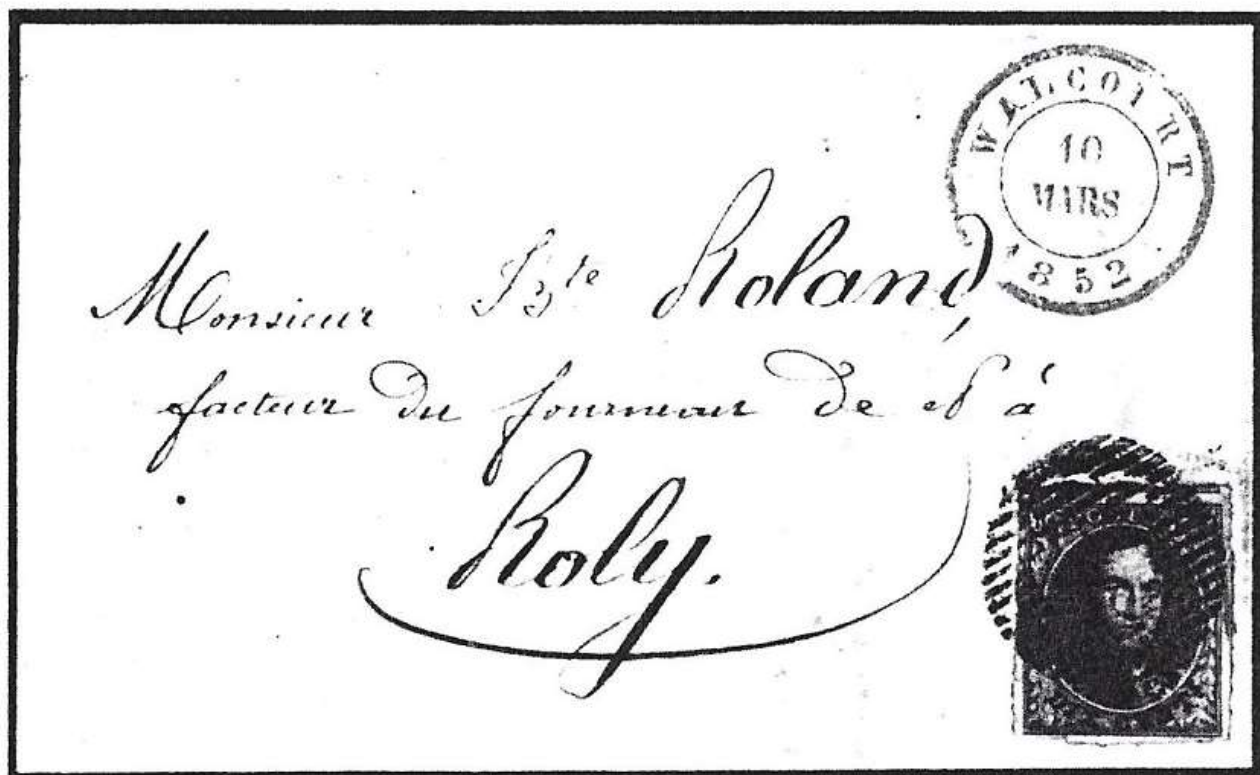 WALCOURT
10
MARS
1852
Monsieur Bte Roland,
facteur du fourneau de et à
Roly.